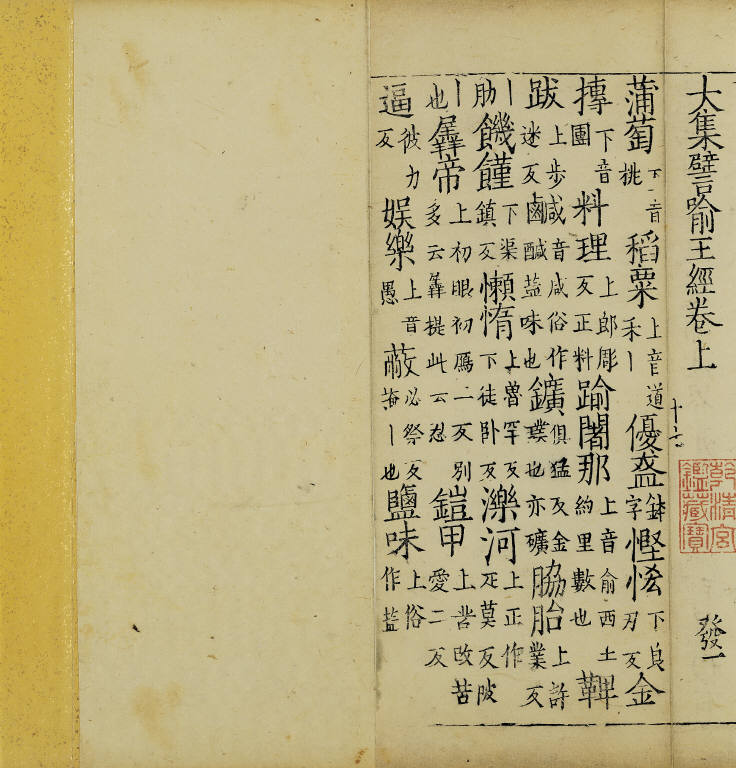 大集譬喻王經卷上 十六 發一
乾清宮鑑藏寶
蒲萄下音桃稻粟上音道禾丨優盋鉢字慳悋下良刃反金
摶下音團料理上郎彫反正料踰闍那上音俞西土約里數也鞞
跋上步迷反鹹音咸俗作醎盐味也鑛俱猛反金璞也亦礦脇胎上許業反
丨肋饑饉下渠鎮反懶惰上魯罕反下徒卧反濼河上正作疋莫反陂
丨也羼帝上初眼初鴈二反別多云羼提此云忍鎧甲上苦改苦愛二反
逼彼力反娛樂上音愚蔽必祭反掩丨也鹽味上俗作盐